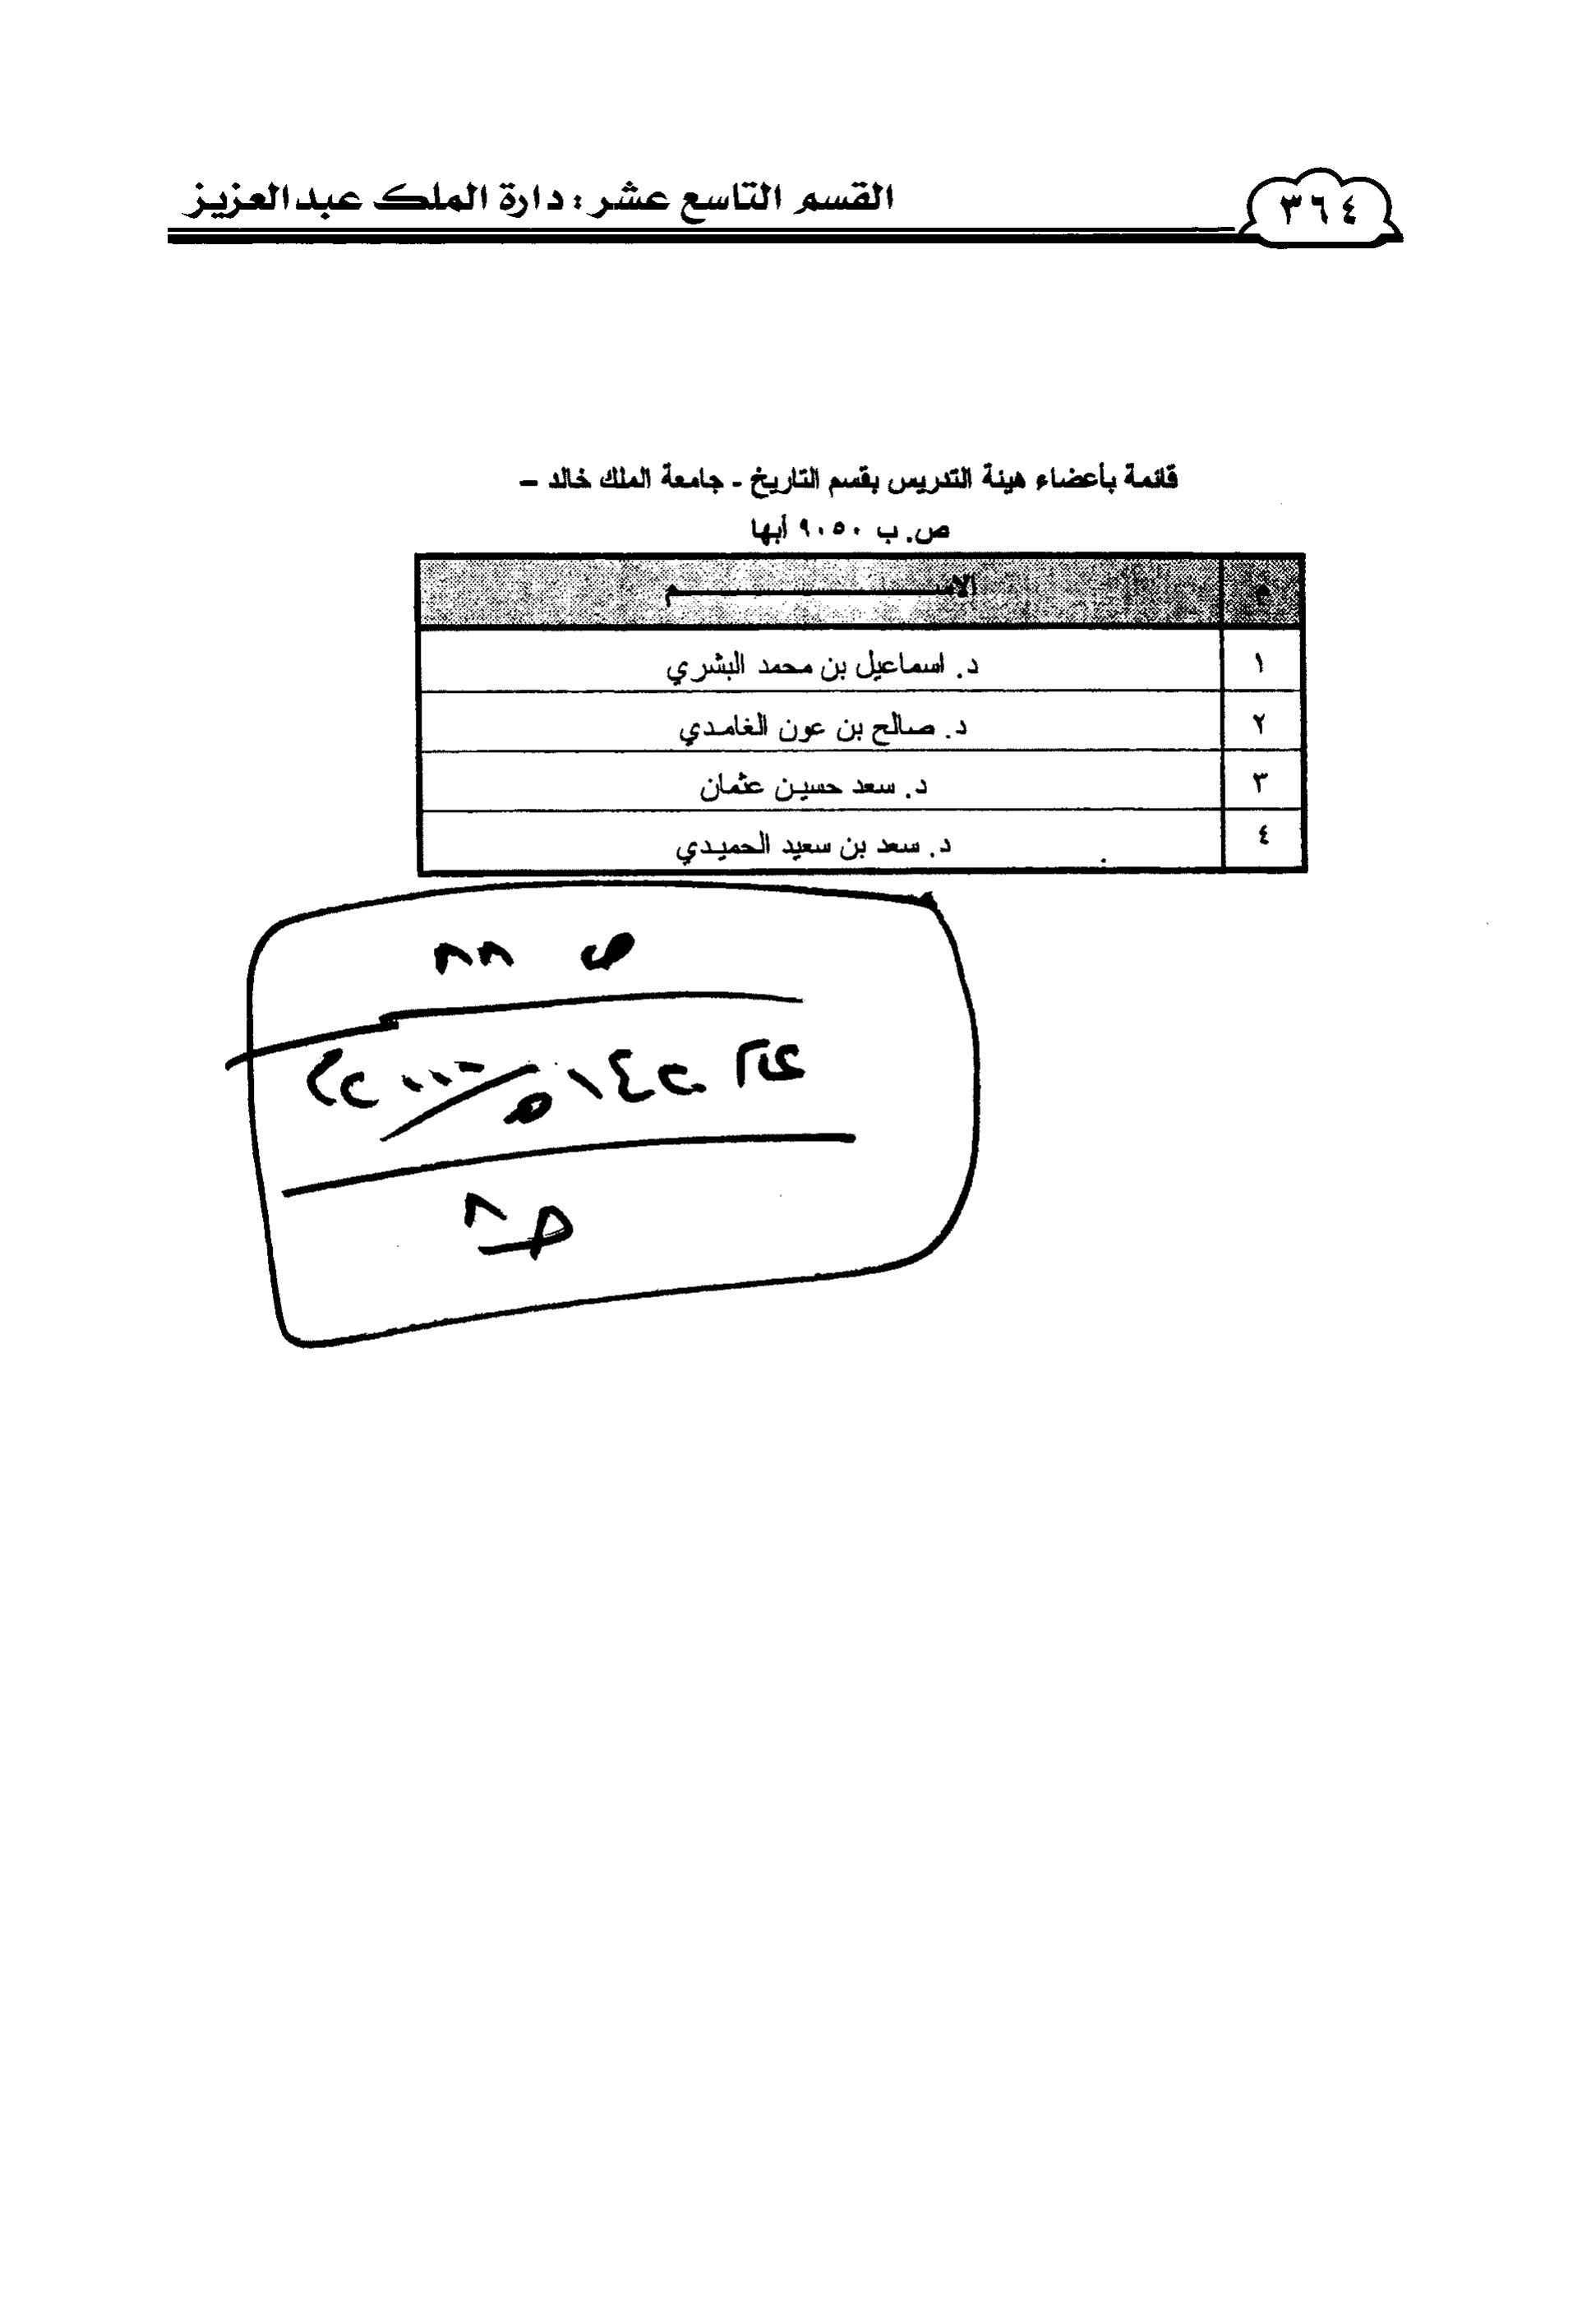 ٣٦٤
القسم التاسع عشر : دارة الملك عبدالعزيز
قائمة بأعضاء هيئة التدريس بقسم التاريخ - جامعة الملك خالد –
ص. ب ٩٠٥٠ أبها
م الاســـــــــم
١ د. اسماعيل بن محمد البشري
٢ د. صالح بن عون الغامدي
٣ د. سعد حسين عثمان
٤ د. سعد بن سعيد الحميدي
ص ٨٨